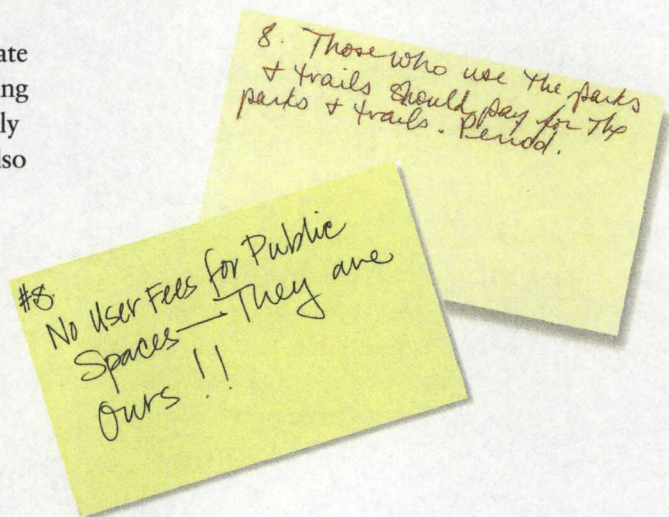 ate
ing
ly
lso
8. Those who use the parks
& trails should pay for the
parks & trails. Period.
#8.
No User Fees for Public
Spaces — They are
Ours !!